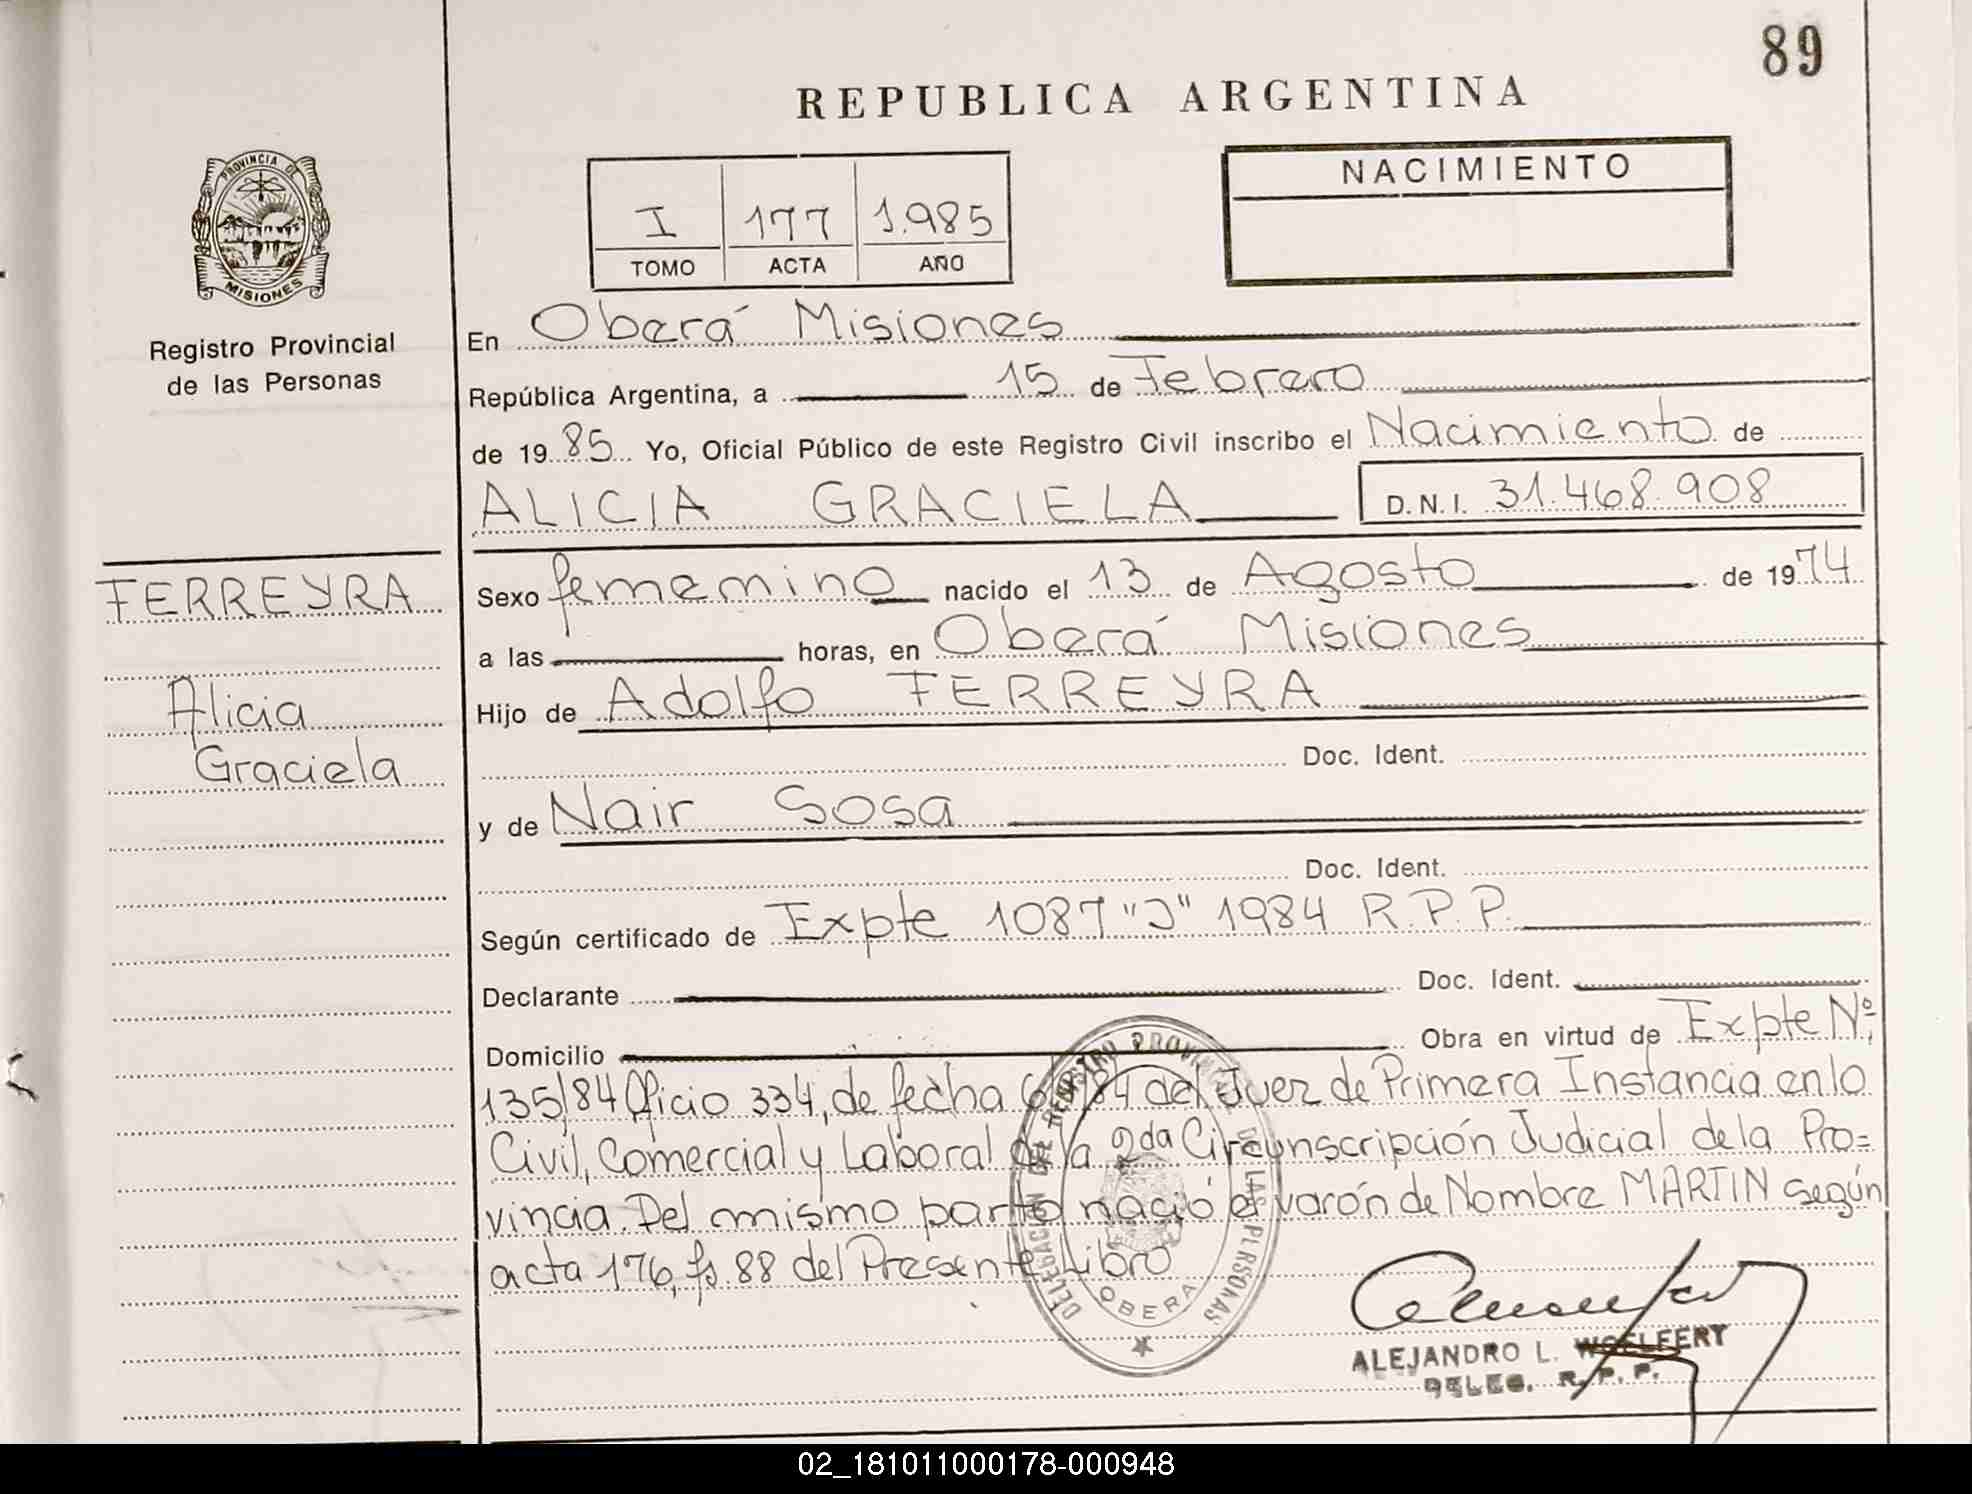 89
REPUBLICA ARGENTINA
PROVINCIA DE
MISIONES
Registro Provincial
de las Personas
I 177 1.985
TOMO ACTA AÑO
NACIMIENTO
En Oberá Misiones
República Argentina, a 15 de Febrero
de 1985 Yo, Oficial Público de este Registro Civil inscribo el Nacimiento de
ALICIA GRACIELA D.N.I. 31.468.908
FERREYRA
Alicia
Graciela
Sexo femenino nacido el 13 de Agosto de 1974
a las horas, en Oberá Misiones
Hijo de Adolfo FERREYRA
Doc. Ident.
y de Nair Sosa
Doc. Ident.
Según certificado de Expte 1087 "J" 1984 R.P.P.
Declarante Doc. Ident.
Domicilio Obra en virtud de Expte Nº
135/84 Oficio 334, de fecha del Juez de Primera Instancia en lo
Civil, Comercial y Laboral de la 2da Circunscripción Judicial de la Pro=
vincia. Del mismo parto nació el varón de Nombre MARTIN según
acta 176, fs. 88 del Presente Libro
DELEGACION DEL REGISTRO PROVINCIAL DE LAS PERSONAS
OBERA
ALEJANDRO L. WOELFERT
DELEG. R.P.P.
02_181011000178-000948